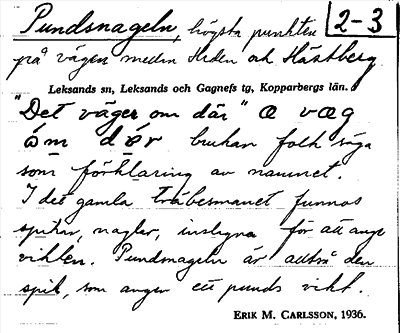 Pundsnageln, högsta punkten
2-3
på vägen mellan Heden och Hästberg
Leksands sn, Leksands och Gagnefs tg, Kopparbergs län.
"Det väger om där" œ væg
óm dǽr brukan folk säga
som förklaring av namnet.
I det gamla träbesmanet funnos
spikar, naglar, inslagna för att ange
vikten. Pundsnageln är alltså den
spik, som anger ett punds vikt.
ERIK M. CARLSSON, 1936.